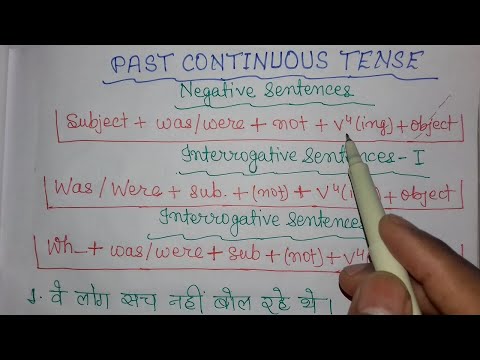 PAST CONTINUOUS TENSE
Negative Sentences
Subject + was/were + not + v⁴(ing) + object
Interrogative Sentences - I
Was/Were + sub. + (not) + v⁴(i + object
Interrogative Sentences
Wh_ + was/were + sub + (not) + v⁴
1. वे लोग सच नहीं बोल रहे थे।